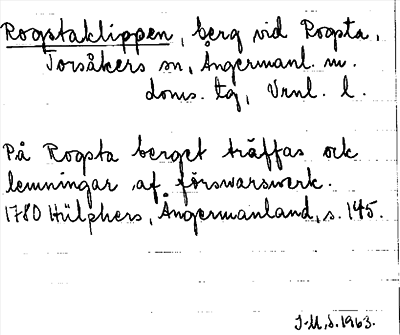 Rogstaklippen, berg vid Rogsta,
Torsåkers sn, Ångermanl. m.
doms. tg, Vrnl. l.
På Rogsta berget träffas ock
lemningar af förswarswerk.
1780 Hülphers, Ångermanland, s. 145.
I-M, S. 1963.